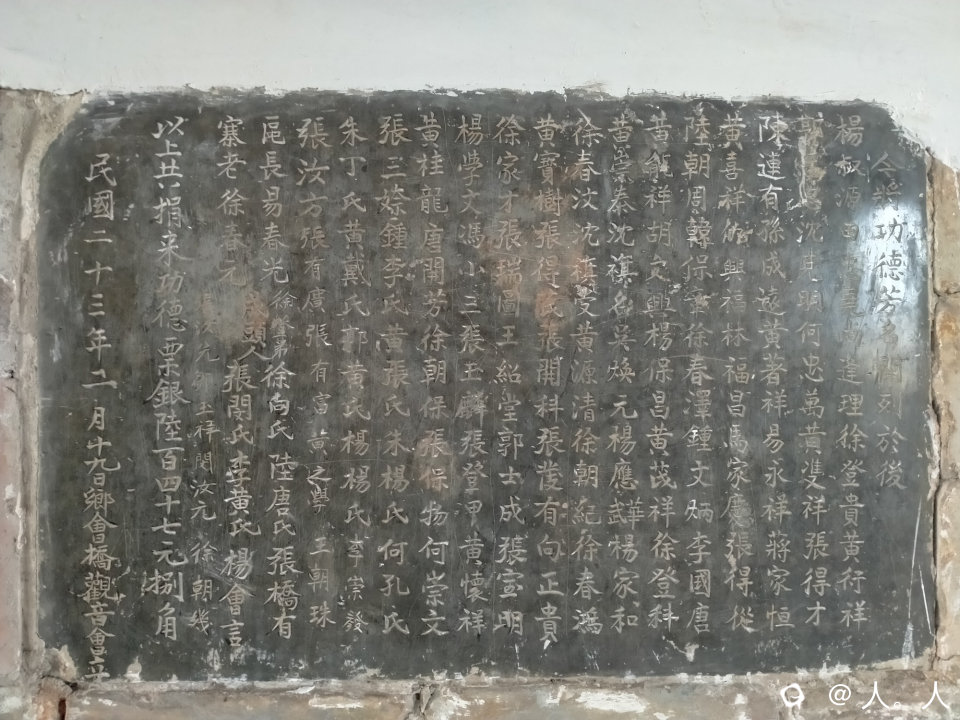 今將功德芳名開列於後
楊 源田 達理徐登貴黃衍祥
沈其順何忠萬黃雙祥張得才
陳連有孫成遠黃著祥易永祥蔣家恒
黃喜祥 興福林福昌馬家慶張得從
陸朝周韓保 徐春澤鍾文炳李國唐
黃 祥胡文興楊保昌黃茂祥徐登科
黃崇泰沈 名吳煥元楊應華武楊家和
徐春汶沈 黃源清徐朝紀徐春鴻
黃寶樹張得 張開科張發有向正貴
徐家才張瑞圖王紹堂郭士成張宝明
楊學文馮小三張玉麟張登甲黃懷祥
黃桂龍唐開芳徐朝保張保揚何崇文
張三 鍾李氏黃張氏朱楊氏何孔氏
朱丁氏黃戴氏郭黃氏楊楊氏李崇發
張汝方張有廣張有富黃之興王朝珠
區長易春光徐 徐向氏陸唐氏張橋有
寨老徐春元 頭人張閔氏李黃氏楊會言
元 王祥閔汝元徐朝幾
以上共捐來功德票銀陸百四十七元捌角
民國二十三年二月十九日鄉會橋觀音會立
@人。人